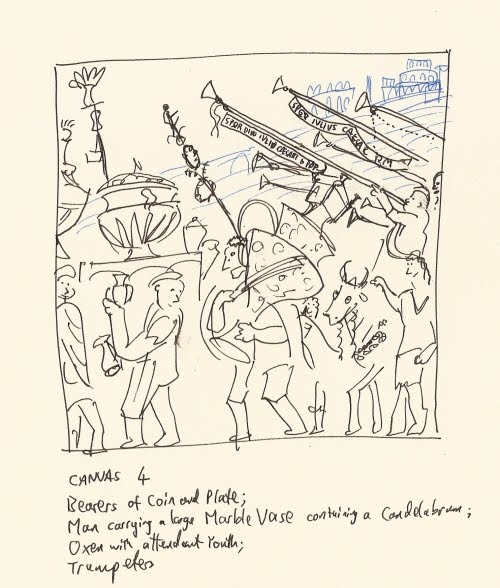 SPQR DIVO IULIO CAESARI D P P P
SPQR IULIUS CAESAR P.M
CANVAS 4
Bearers of Coin and Plate;
Man carrying a large Marble Vase containing a Candelabrum;
Oxen with attendant Youth;
Trumpeters